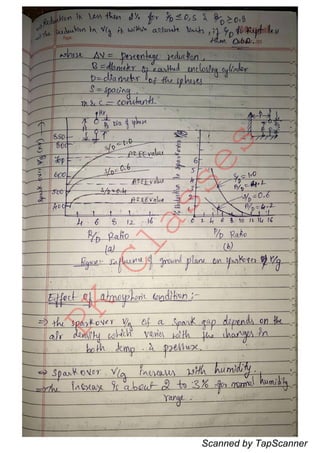 ⇒ Reduction is less than 4% for S/D ≤ 0.5 & B/D ≥ 0.8
⇒ The reduction in V/g is within accurate limits, if S/D is kept less than 0.8D.
where ΔV = percentage reduction,
B = diameter of earthed enclosing cylinder
D = diameter of the spheres
S = spacing
m & c = constants.
Spark over V/g (kV) →
Dia of sphere
550
500
600
500
400
S/D=1.0
AIEE value
S/D=0.6
AIEE value
S/D=0.4
AIEE value
4 6 8 12 16
B/D Ratio
(a)
% Reduction in sparkover V/g
S/D=1.0
S/D=0.6
0 2 4 6 8 10 12 14 16
B/D Ratio
(b)
Figure:- Influence of ground plane on sparkover V/g
Effect of atmospheric condition :-
⇒ the sparkover V/g of a spark gap depends on the
air density which varies with the changes in
both temp. & pressure.
⇒ Sparkover V/g increases with humidity.
⇒ The increase is about 2 to 3% for normal humidity
range.
PK Classes
Scanned by TapScanner